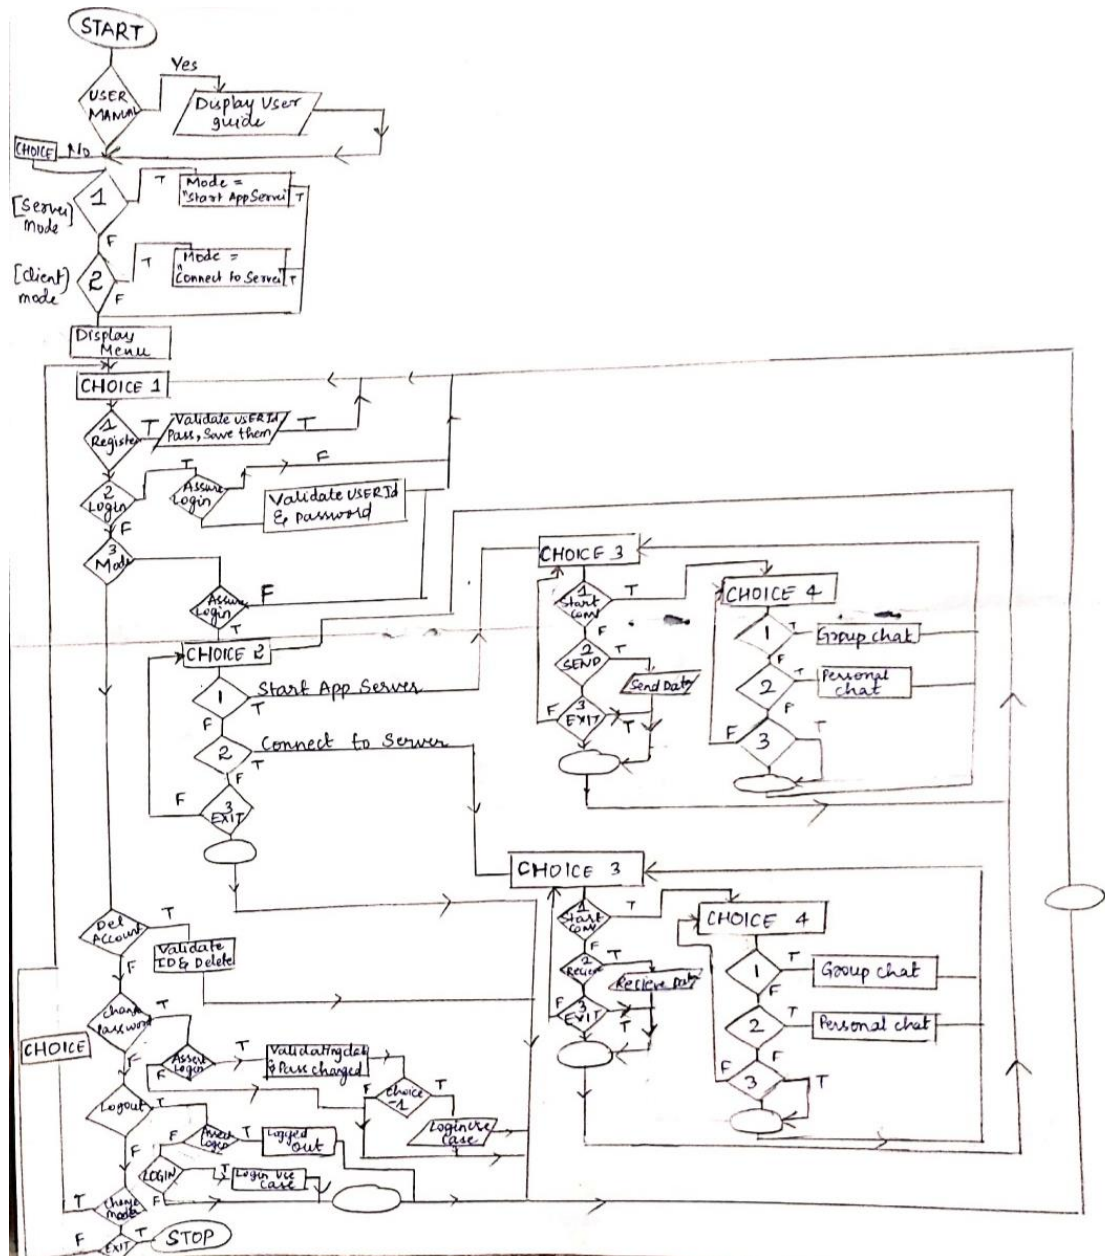 START
Yes
USER
MANUAL
Display User
guide
CHOICE
No
1
T
Mode =
"Start AppServer"
T
[Server]
Mode
F
2
T
Mode =
"Connect to Server"
T
[Client]
mode
F
Display
Menu
CHOICE 1
1
Register
T
Validate USERId
Pass, Save them
T
2
Login
T
Assure
Login
F
Validate USERId
& Password
F
3
Mode
Assure
Login
F
T
CHOICE 2
1
Start App Server
T
F
2
Connect to Server
T
F
3
EXIT
F
CHOICE 3
1
Start
Conv
T
F
2
SEND
T
Send Data
F
3
EXIT
T
CHOICE 4
1
T
Group chat
F
2
T
Personal
chat
F
F
3
T
CHOICE 3
1
Start
Conv
T
F
2
Recieve
T
Recieve Data
F
3
EXIT
T
CHOICE 4
1
T
Group chat
F
2
T
Personal chat
F
F
3
T
Del
Account
T
Validate
ID & Delete
F
Password
T
CHOICE
F
Login
T
F
& Pass changed
F
choice
-1
T
Login Use
Case
Logout
T
F
Login
T
Logged
Out
F
LOGIN
T
Login Use
Case
F
T
Change
mode
F
F
EXIT
T
STOP